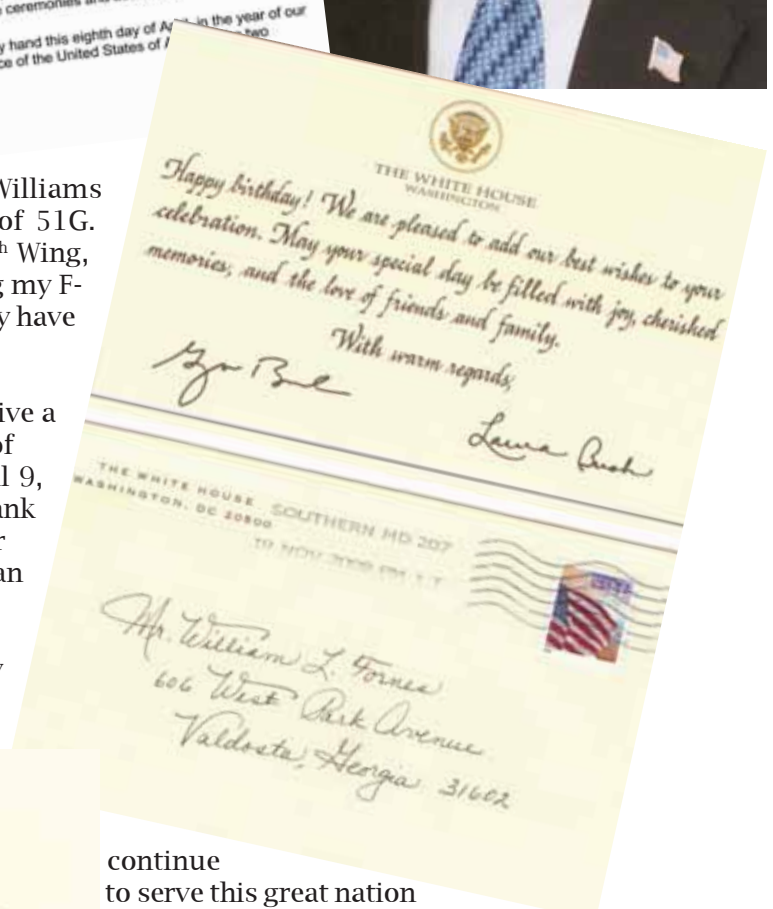 ceremonies and
hand this eighth day of April, in the year of our
ce of the United States of two
Williams
of 51G.
h Wing,
g my F-
y have
ive a
of
l 9,
ank
r
an
y
THE WHITE HOUSE
WASHINGTON
Happy birthday! We are pleased to add our best wishes to your
celebration. May your special day be filled with joy, cherished
memories, and the love of friends and family.
With warm regards,
Laura Bush
THE WHITE HOUSE
WASHINGTON, DC 20500
SOUTHERN MD 207
NOV PM
Mr. William L. Fornes
606 West Park Avenue
Valdosta, Georgia 31602
continue
to serve this great nation